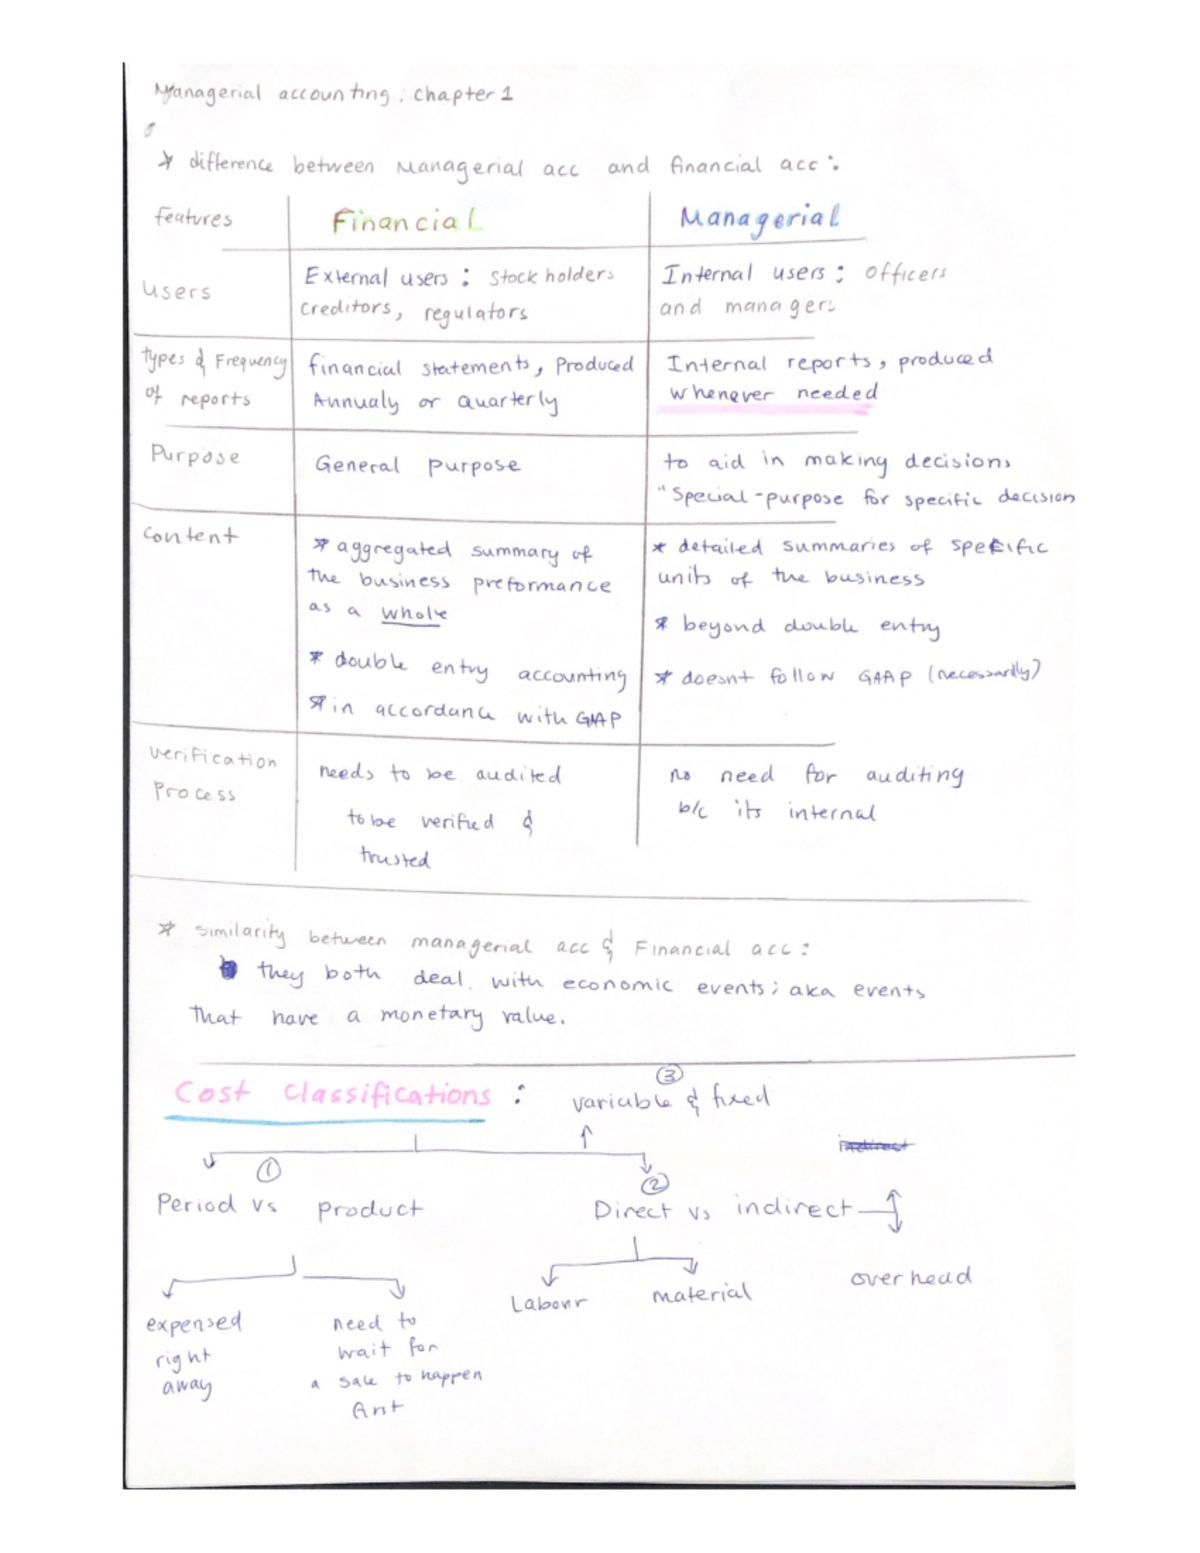 Managerial accounting. chapter 1
* difference between Managerial acc and financial acc:
features Financial Managerial
Users
External users: Stock holders
creditors, regulators
Internal users: officers
and managers
types & Frequency
of reports
financial statements, Produced
Annualy or quarterly
Internal reports, produced
whenever needed
Purpose
General purpose
to aid in making decisions
"Special-purpose for specific decision
Content
* aggregated summary of
the business preformance
as a whole
* double entry accounting
* in accordance with GAAP
* detailed summaries of specific
units of the business
* beyond double entry
* doesnt follow GAAP (necessarily)
verification
Process
needs to be audited
to be verified &
trusted
no need for auditing
b/c its internal
* similarity between managerial acc & Financial acc:
they both deal. with economic events; aka events
that have a monetary value.
Cost Classifications:
③
variable & fixed
①
Period vs product
②
Direct vs indirect
expensed
right
away
need to
wait for
a sale to happen
Labour
material
overhead